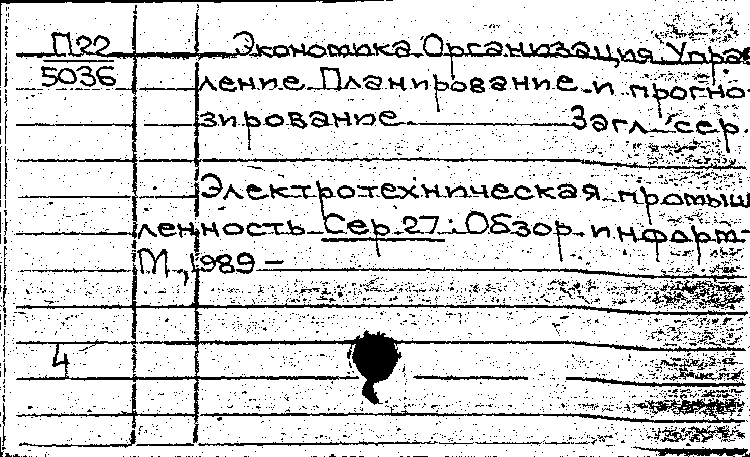 П22 Экономика. Организация. Управ
5036 ление. Планирование и прогно
зирование. Загл. сер.
Электротехническая промыш
ленность. Сер. 27: Обзор. информ.
М., 1989 –
4